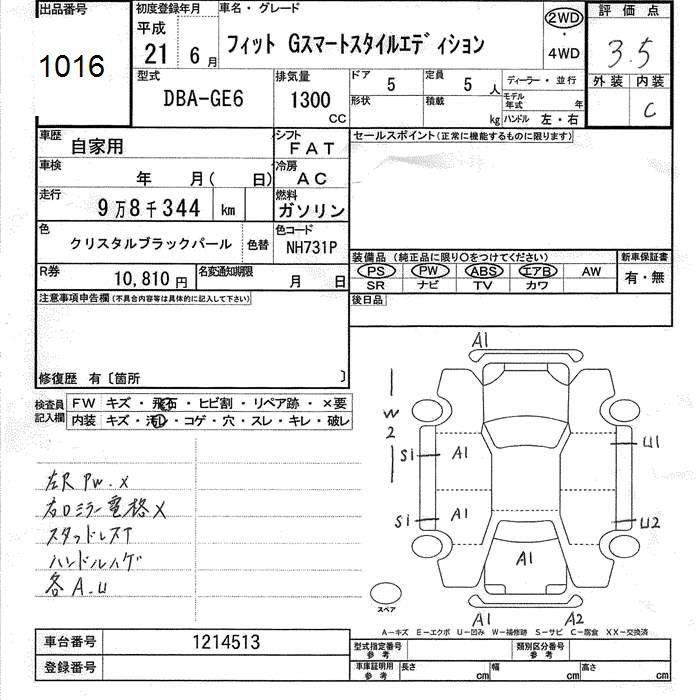 出品番号
1016
初度登録年月
平成
21 6 月
車名・グレード
フィット Gスマートスタイルエディション
2WD
・
4WD
評価点
3.5
外装 内装
C
型式
DBA-GE6
排気量
1300
CC
ドア 5
定員 5 人
形状
積載 kg
ディーラー・並行
モデル年式 年
ハンドル 左・右
車歴
自家用
シフト
FAT
車検
年 月( 日)
冷房
AC
走行
9万8千344 km
燃料
ガソリン
色
クリスタルブラックパール
色替
色コード
NH731P
R券
10,810 円
名変通知期限
月 日
セールスポイント(正常に機能するものに限ります)
装備品(純正品に限り○をつけてください)
PS PW ABS エアB AW
SR ナビ TV カワ
新車保証書
有・無
後日品
注意事項申告欄(不具合内容等は具体的に記入して下さい)
修復歴 有〔箇所 〕
検査員記入欄
FW キズ・飛石・ヒビ割・リペア跡・×要
内装 キズ・汚レ・コゲ・穴・スレ・キレ・破レ
左R PW.×
右Dミラー電格×
スタッドレスT
ハンドルハゲ
各A.U
A1
W
2
S1 A1 U1
S1 A1 U2
A1
スペア
A1 A2
A-キズ E-エクボ U-凹み W-補修跡 S-サビ C-腐食 XX-交換済
車台番号 1214513
登録番号
型式指定番号 参考
類別区分番号 参考
車庫証明用 参考
長さ cm
幅 cm
高さ cm